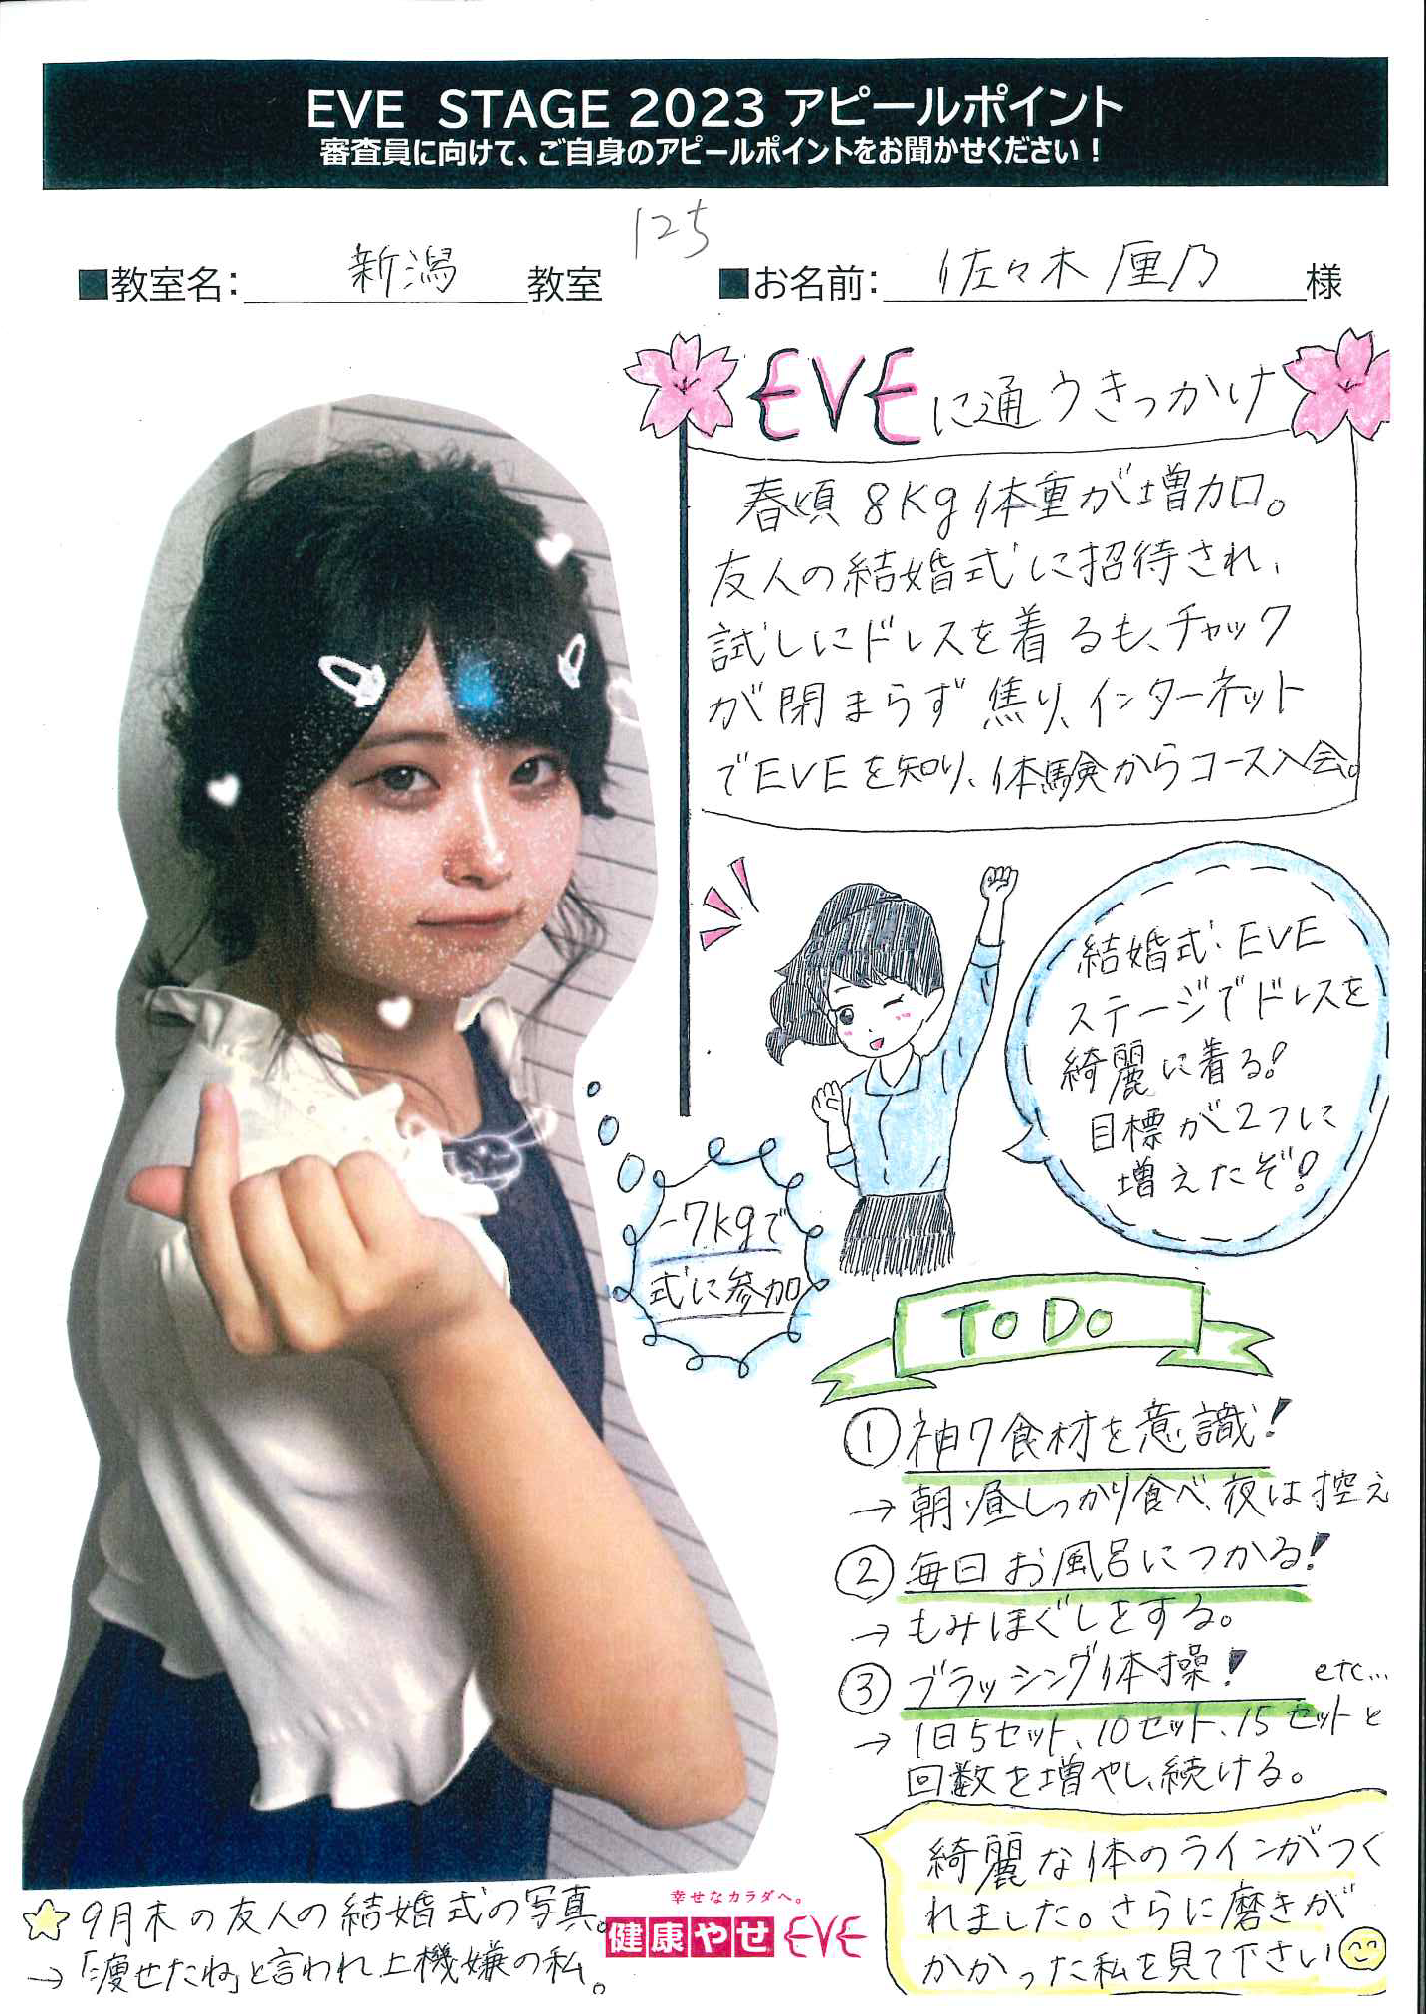 EVE STAGE 2023 アピールポイント
審査員に向けて、ご自身のアピールポイントをお聞かせください！
125
■教室名： 新潟 教室
■お名前： 佐々木 厘乃 様
EVEに通うきっかけ
春頃8Kg体重が増加。
友人の結婚式に招待され、
試しにドレスを着るも、チャック
が閉まらず焦り、インターネット
でEVEを知り、体験からコース入会。
結婚式・EVE
ステージでドレスを
綺麗に着る！
目標が2つに
増えたぞ！
-7kgで
式に参加
To Do
①神7食材を意識！
→朝・昼しっかり食べ、夜は控え
②毎日お風呂につかる！
→もみほぐしをする。
③ブラッシング体操！ etc...
→1日5セット、10セット、15セットと
回数を増やし、続ける。
綺麗な体のラインがつく
れました。さらに磨きが
かかった私を見て下さい
☆9月末の友人の結婚式の写真。
→「痩せたね」と言われ上機嫌の私。
幸せなカラダへ。
健康やせEVE